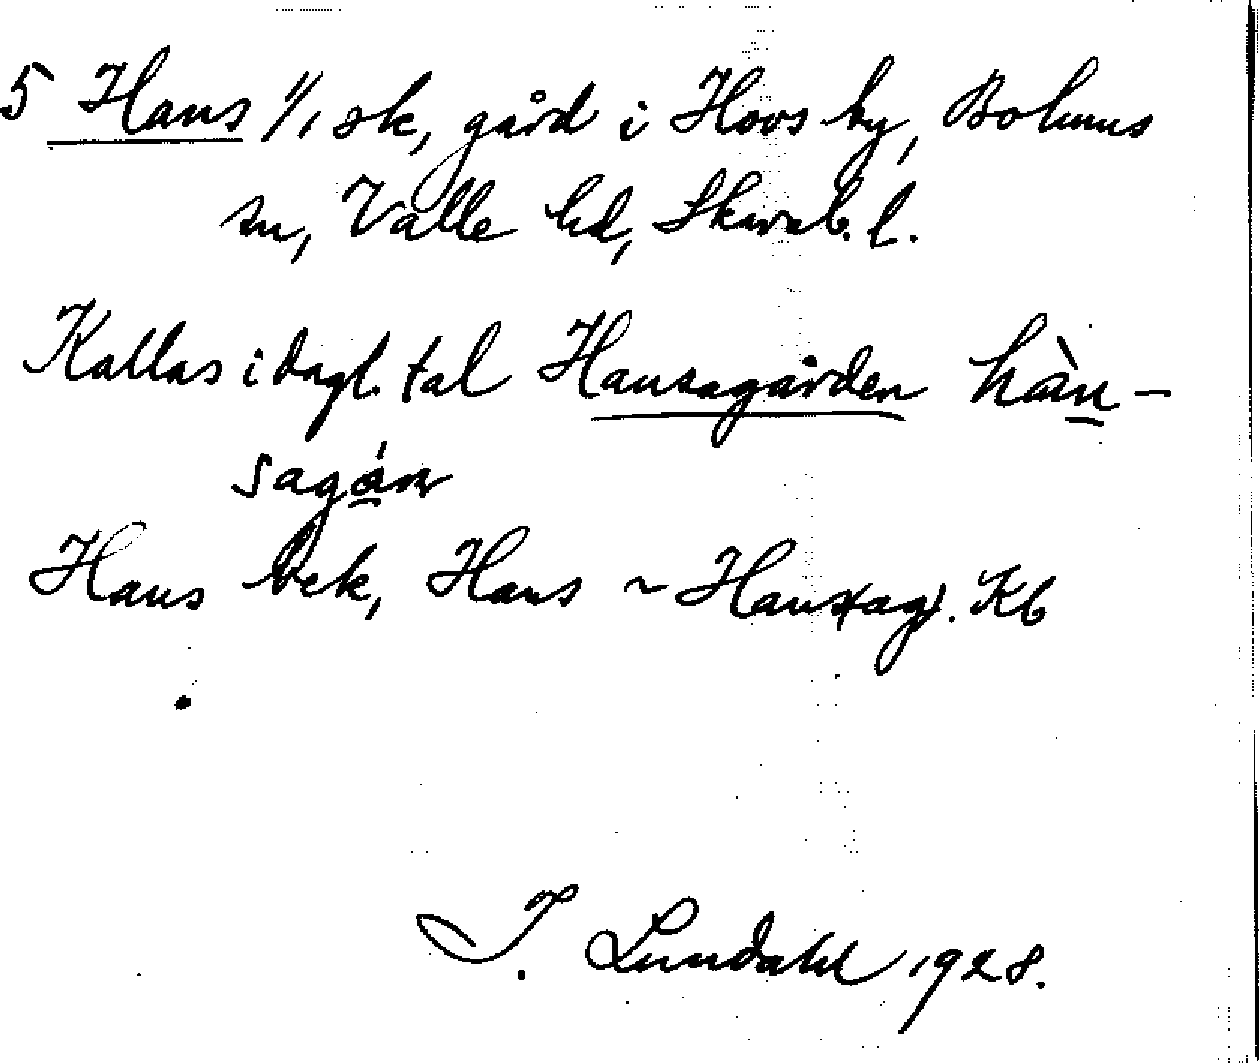 5 Hans 1/1 sk, gård i Hovs by, Bolums
sn, Valle hd, Skarab. l.
Kallas i dagl. tal Hansagården hàn-
sagán
Hans bek, Hans ~ Hansag. Kb
I. Lundahl 1928.